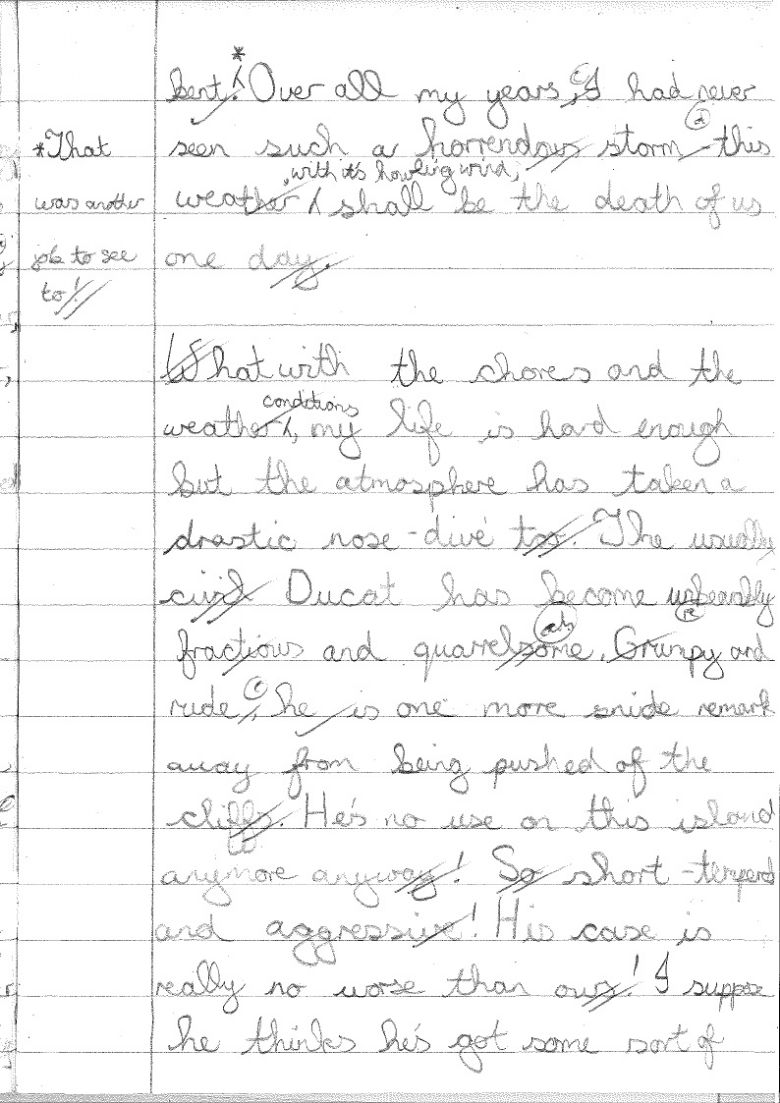 *
bent! Over all my years, I had never
*That seen such a horrendous storm - this
with it's howling wind,
was another weather shall be the death of us
job to see one day.
to!
What with the chores and the
conditions
weather, my life is hard enough
but the atmosphere has taken a
drastic nose-dive too. The usually
civil Ducat has become unbearably
fractious and quarrelsome. Grumpy and
rude, he is one more snide remark
away from being pushed of the
cliffs. He's no use on this island
anymore anyway! So short-temperd
and aggressive! His case is
really no worse than ours! I suppose
he thinks he's got some sort of